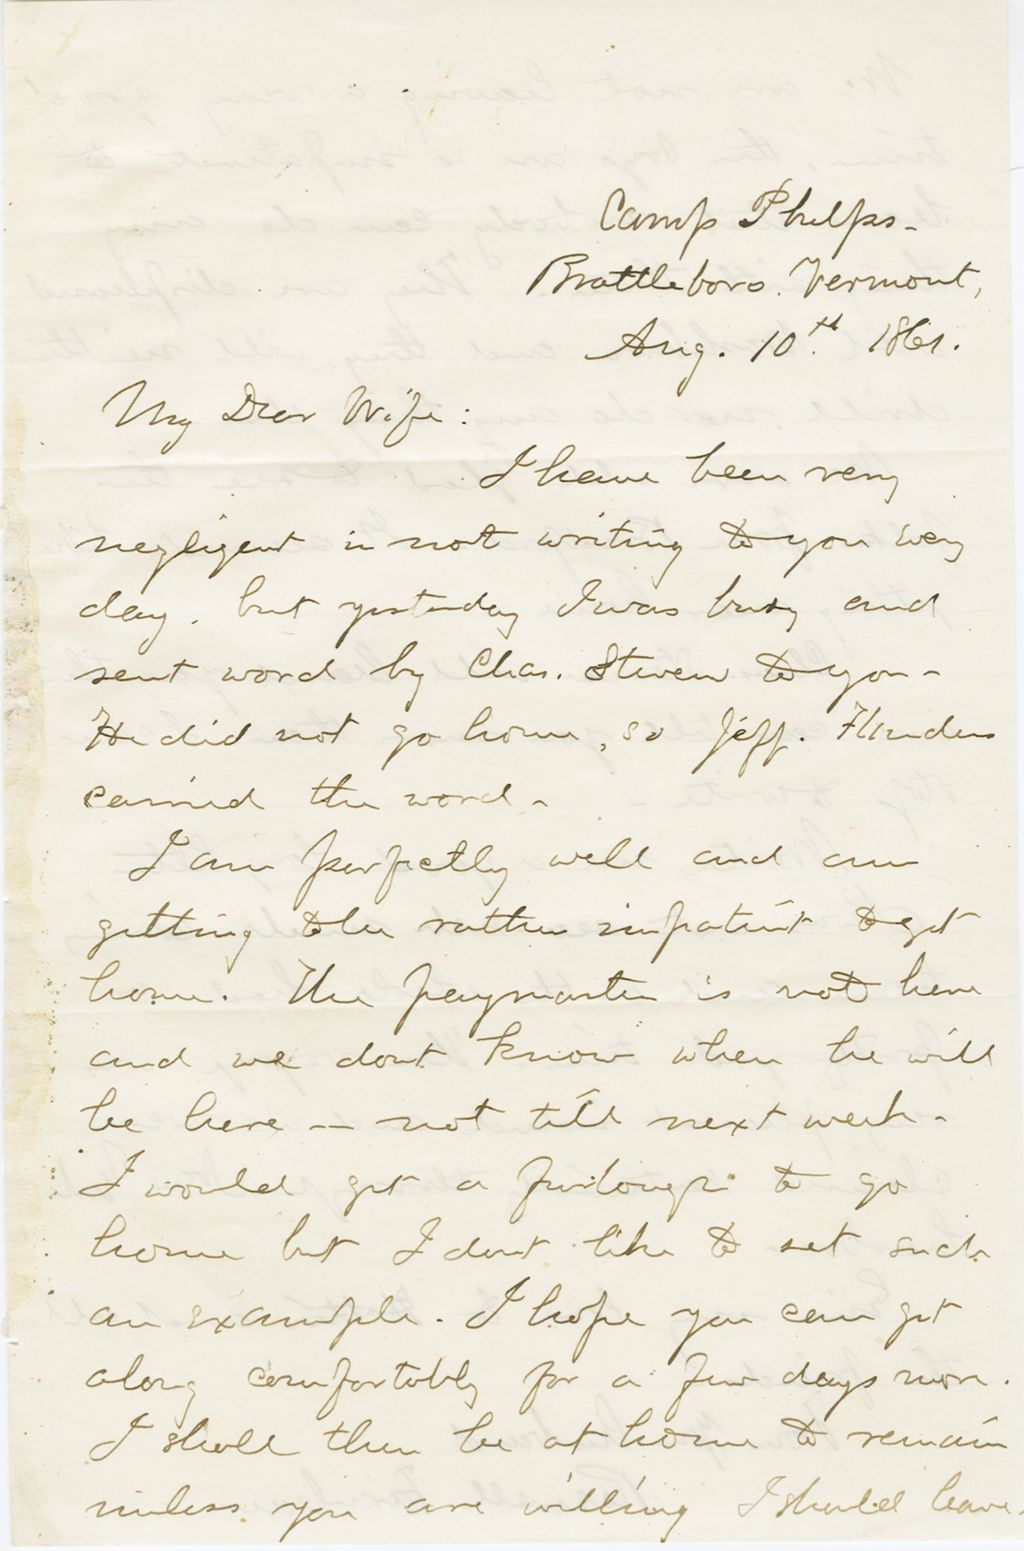 Camp Phelps -
Brattleboro. Vermont,
Aug. 10th. 1861.
My Dear Wife:
I have been very
negligent in not writing to you every
day, but yesterday I was busy and
sent word by Chas. Steven to you -
He did not go home, so Jeff. Flanders
carried the word -
I am perfectly well and am
getting to be rather impatient to get
home. The paymaster is not here
and we dont know when he will
be here — not till next week -
I would get a furlough to go
home but I dont like to set such
an example. I hope you can get
along comfortably for a few days more.
I shall then be at home to remain
unless you are willing I should leave.